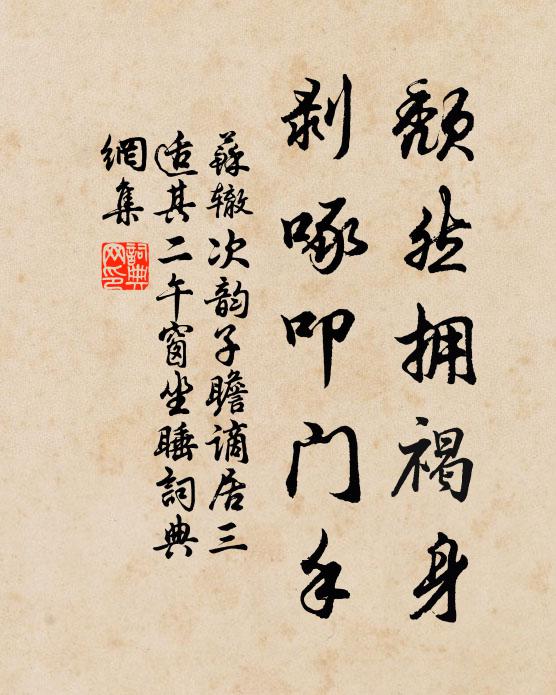 颓然拥褐身
剥啄叩门手
蘇辙次韵子瞻谪居三
适其二午窗坐睡詞典
網集
詞典
网印